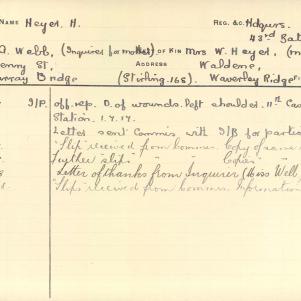 NAME Heyer, H. REG. &C. Hdqurs.
43rd Bat
G. Webb, (Inquires for mother) OF KIN Mrs W. Heyer, (m
enny St, ADDRESS Waldene,
urray Bridge (Stirling.165). Waverley Ridge
I/P. off. rep. D. of wounds. left shoulder. 11th Cas
Station. 1.7.17.
Letter sent Commis with I/B for partic
"Slip" received from Commis. Copy of same
Further "slip" " " " Copies "
Letter of thanks from Inquirer (Miss Webb
"Slip" received from Commis. Information